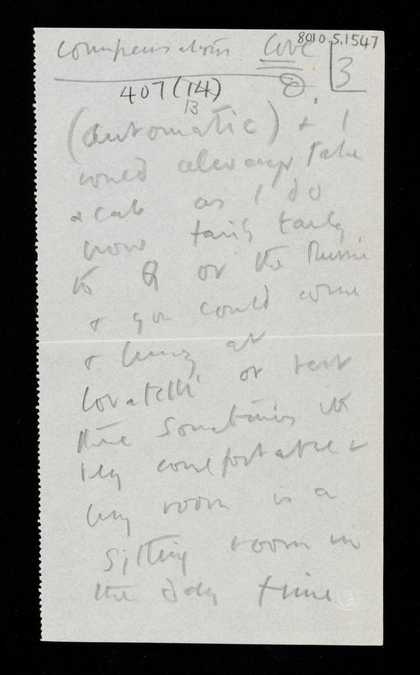 8010.5.1547
compensations Love 3
8
407 (14)
13
(automatic) + I
would always take
a cab as I do
now fairly
to Q or the
+ you could come
+ at
Lovatelli or rest
there sometimes its
very comfortable +
my room is a
sitting room in
the day time